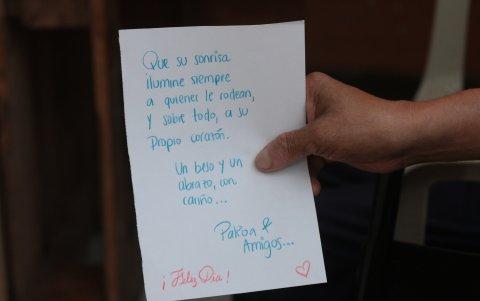 Que su sonrisa
ilumine siempre
a quienes le rodean,
y sobre todo, a su
Propio corazón.
Un beso y un
abrazo, con
cariño...
Pakoa &
Amigos...
¡Feliz Día!